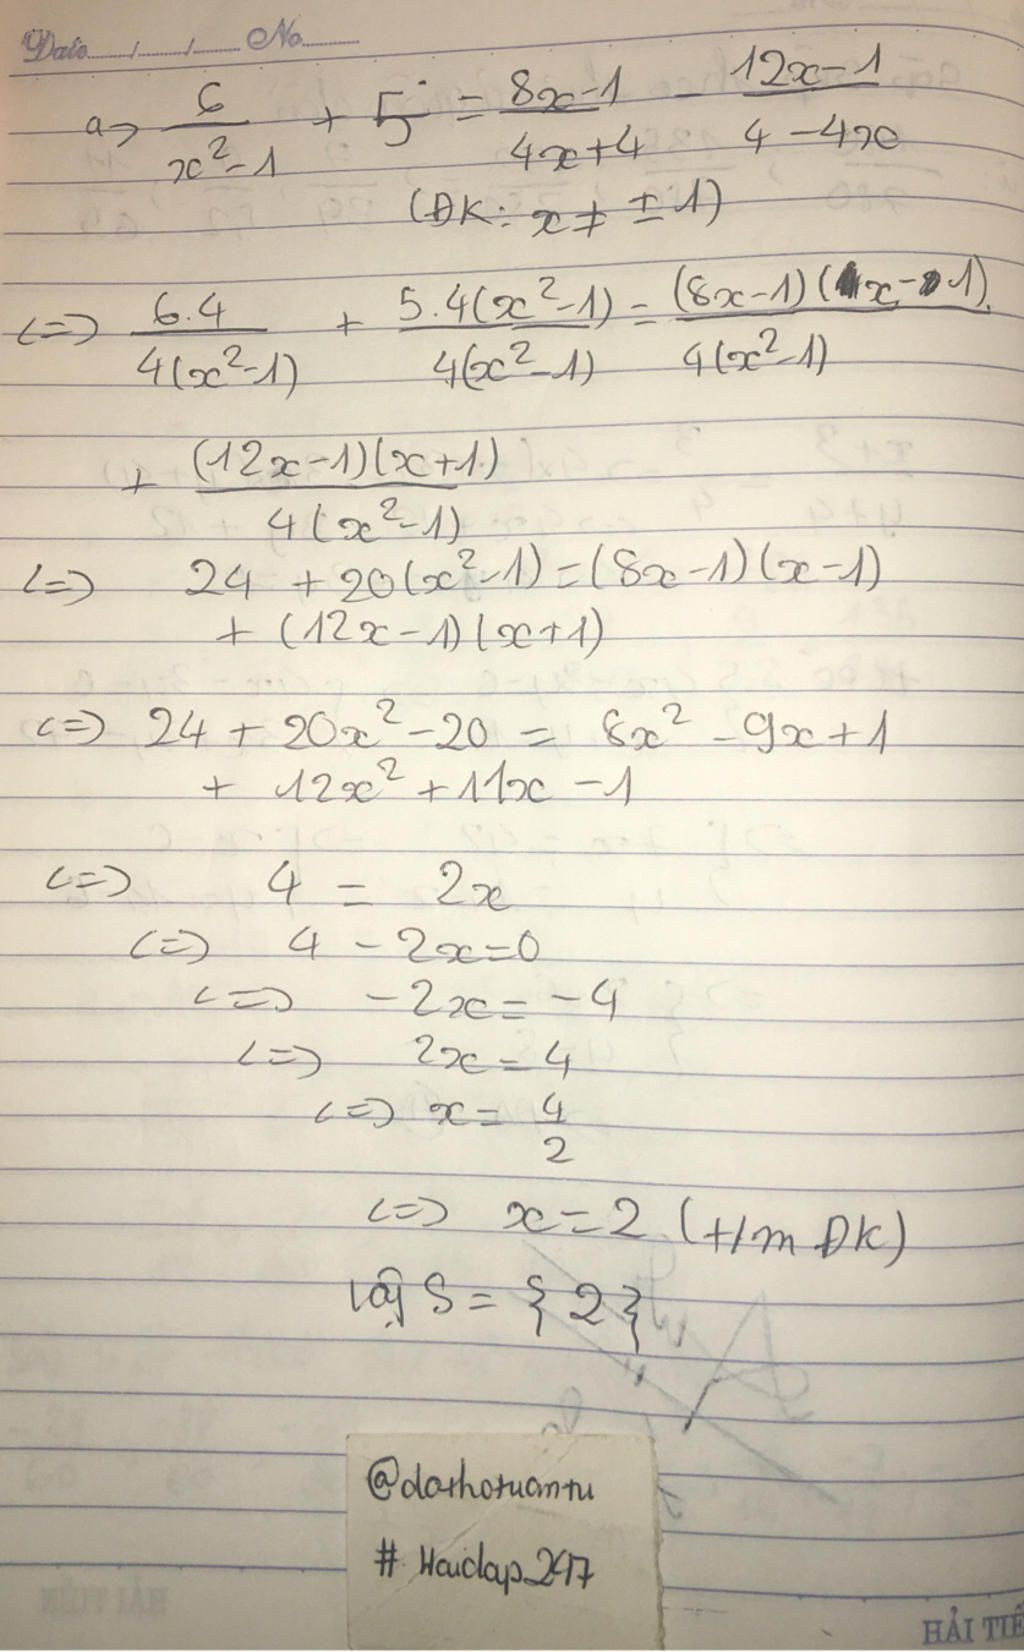 Date...../...../........ No..........
a> 6/(x²-1) + 5 = (8x-1)/(4x+4) - (12x-1)/(4-4x)
(ĐK: x ≠ ±1)
<=> 6.4/(4(x²-1)) + 5.4(x²-1)/(4(x²-1)) = (8x-1)(x-1)/(4(x²-1))
+ (12x-1)(x+1)/(4(x²-1))
<=> 24 + 20(x²-1) = (8x-1)(x-1)
+ (12x-1)(x+1)
<=> 24 + 20x² - 20 = 8x² - 9x + 1
+ 12x² + 11x - 1
<=> 4 = 2x
<=> 4 - 2x = 0
<=> -2x = -4
<=> 2x = 4
<=> x = 4/2
<=> x = 2 (t/m ĐK)
Vậy S = {2}
@dathotuantu
# Hoidap_247
HẢI TIẾ